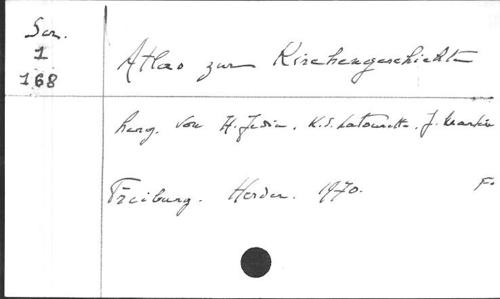 Ser.
1
168
Atlas zur Kirchengeschichte
herg. von H. Jedin. K.S. Latourette. J. Martin
Freiburg. Herder. 1970. F.